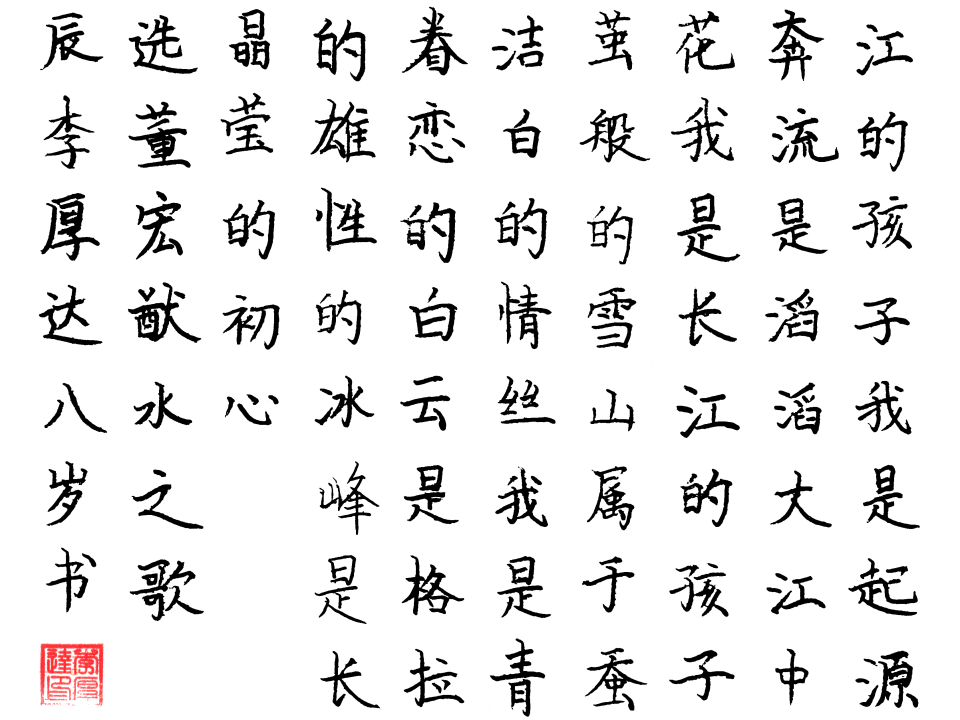 江的孩子我是起源
奔流是滔滔大江中
花我是长江的孩子
茧般的雪山属于蚕
洁白的情丝我是青
眷恋的白云是格拉
的雄性的冰峰是长
晶莹的初心
选董宏猷水之歌
辰李厚达八岁书